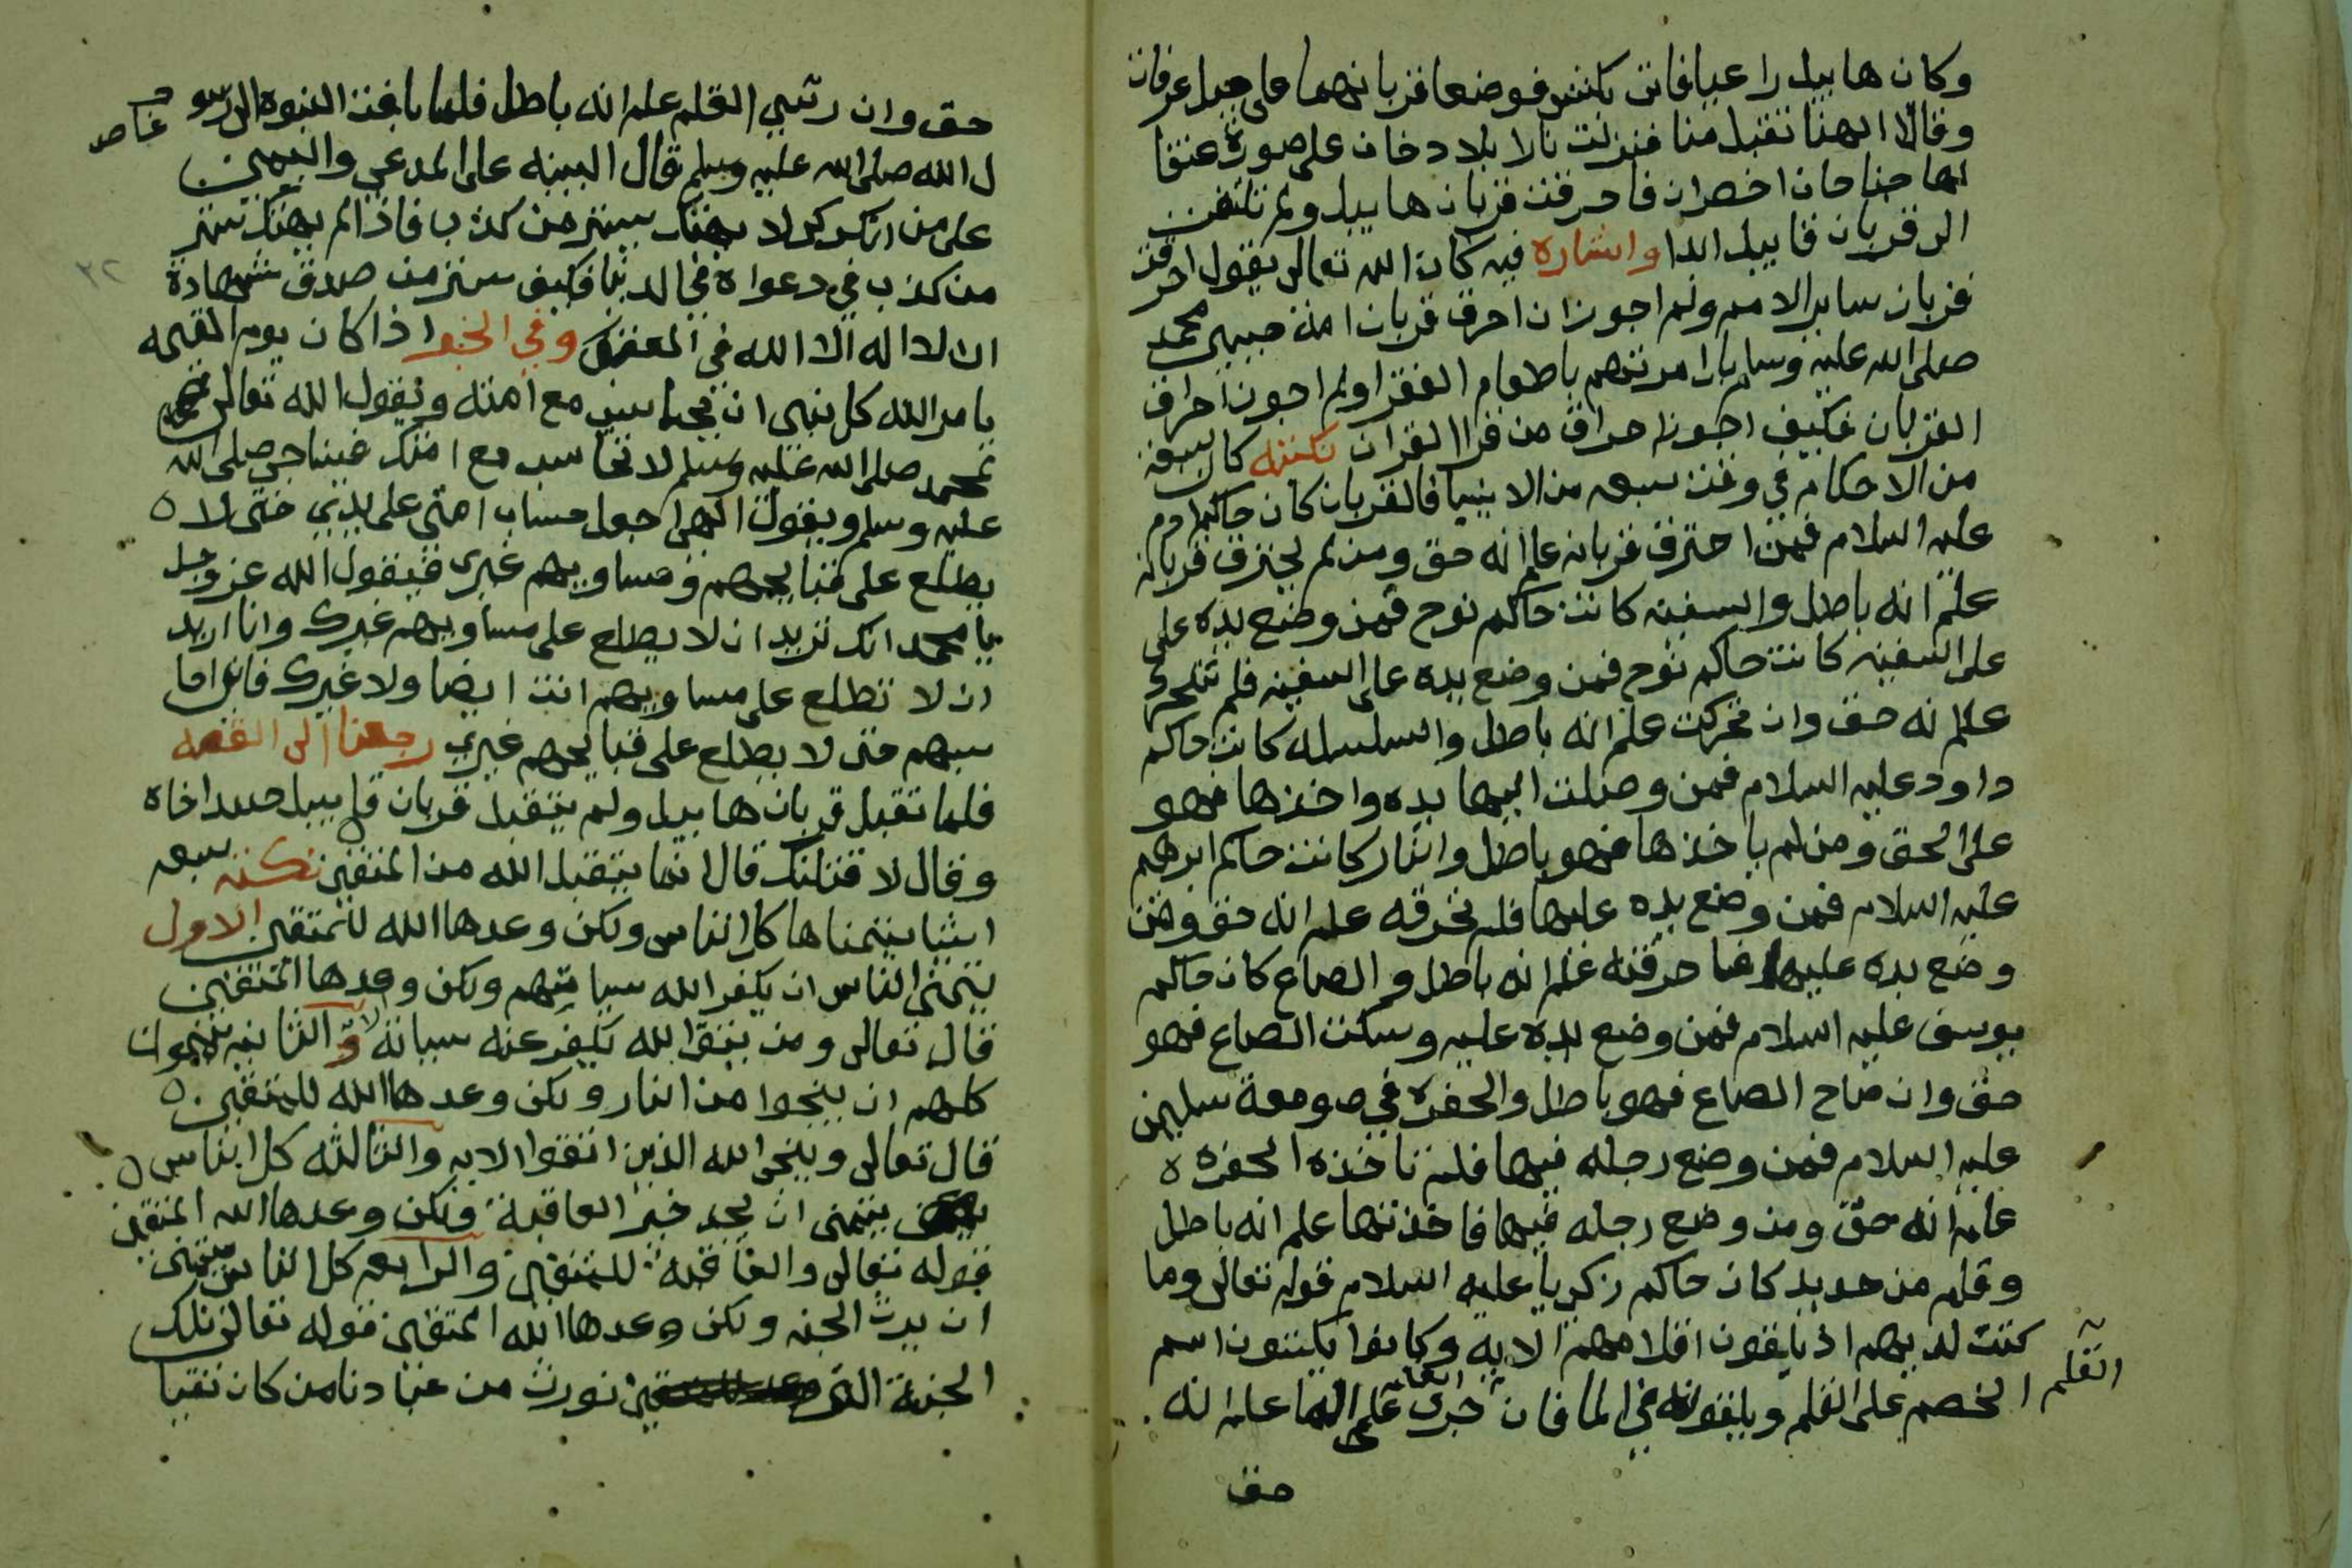 وكان هابيل راعيا فاتى بكبش فوضعا قربانهما على جبل عرفات
وقالا الهنا تقبل منا فنزلت نار بلا دخان على صورة عنقا
لها جناحان اخضران فاحرقت قربان هابيل ولم تلتفت
الى قربان قابيل ابدا واشاره فيه كان الله تعالى يقول احرقت
قربان ساير الامم ولم اجوز ان احرق قربان امة حبيبي محمد
صلى الله عليه وسلم بل امرتهم باطعام الفقرا ولم اجوز احراق
القربان فكيف اجوز احراق من قرا القران نكته كان سبعة
من الاحكام في وقت سبعه من الانبيا فالقربان كان حاكم ادم
عليه السلام فمن احترق قربانه علم انه حق ومن لم يحترق قربانه
علم انه باطل والسفينه كانت حاكم نوح فمن وضع يده على
على السفينه كانت حاكم نوح فمن وضع يده على السفينه فلم تتحرك
علم انه حق وان تحركت علم انه باطل والسلسله كانت حاكم
داود عليه السلام فمن وصلت اليها يده واخذها فهو
على الحق ومن لم ياخذها فهو باطل والنار كانت حاكم ابرهيم
عليه السلام فمن وضع يده عليها فلم تحرقه علم انه حق ومن
وضع يده عليها فاحرقته علم انه باطل والصاع كان حاكم
يوسف عليه السلام فمن وضع يده عليه وسكت الصاع فهو
حق وان صاح الصاع فهو باطل والحفره في صومعة سليمن
عليه السلام فمن وضع رجله فيها فلم تاخذه الحفره ه
علم انه حق ومن وضع رجله فيها فاخذتها علم انه باطل
وقلم من حديد كان حاكم زكريا عليه السلام قوله تعالى وما
كنت لديهم اذ يلقون اقلامهم الايه وكانوا يكتبون اسم
الخصم على القلم ويلقونه في الما فان جرى القلم على الما علم انه
القلم
حق
حق وان رسي القلم علم انه باطل فلما بلغت النبوه الى رسو
ل الله صلى الله عليه وسلم قال البينه على المدعي واليمين
خاصه
على من انكر كيلا يهتك ستر من كذب فاذا لم يهتك ستر
من كذب في دعواه في الدنيا فكيف ستر من صدق شهادة
٣٢
ان لا اله الا الله في وفي الخبر اذا كان يوم القيمه
يامر الله كل نبي ان يحاسب مع امته ويقول الله تعالى
لمحمد صلى الله عليه وسلم لا تحاسب مع امتك فيناجي صلى الله
عليه وسلم ويقول الهي اجعل حساب امتي على يدي حتى لا ه
يطلع على قبايحهم ومساويهم غيري فيقول الله عز وجل
يا محمد انك تريد ان لا يطلع على مساويهم غيرك وانا اريد
ان لا تطلع على مساويهم انت ايضا ولا غيرك فانا احا
سبهم حتى لا يطلع على قبايحهم غيري رجعنا الى القصه
فلما تقبل قربان هابيل ولم يتقبل قربان قابيل حسد اخاه
وقال لاقتلنك قال انما يتقبل الله من المتقين نكته سبعه
اشيا يتمناها كل الناس ولكن وعدها الله للمتقين الاول
يتمنى الناس ان يكفر الله سياتهم ولكن وعدها المتقين
قال تعالى ومن يتق الله يكفر عنه سياته والثانيه يتمون
كلهم ان ينجوا من النار ولكن وعدها الله للمتقين ه
قال تعالى وينجي الله الذين اتقوا الايه والثالثه كل الناس ه
يتمنى ان يجد خير العاقبة ولكن وعدها الله المتقين
قوله تعالى والعاقبه للمتقين والرابعه كل الناس يتمنى
ان يرث الجنه ولكن وعدها الله المتقين قوله تعالى تلك
الجنة التي نورث من عبادنا من كان تقيا